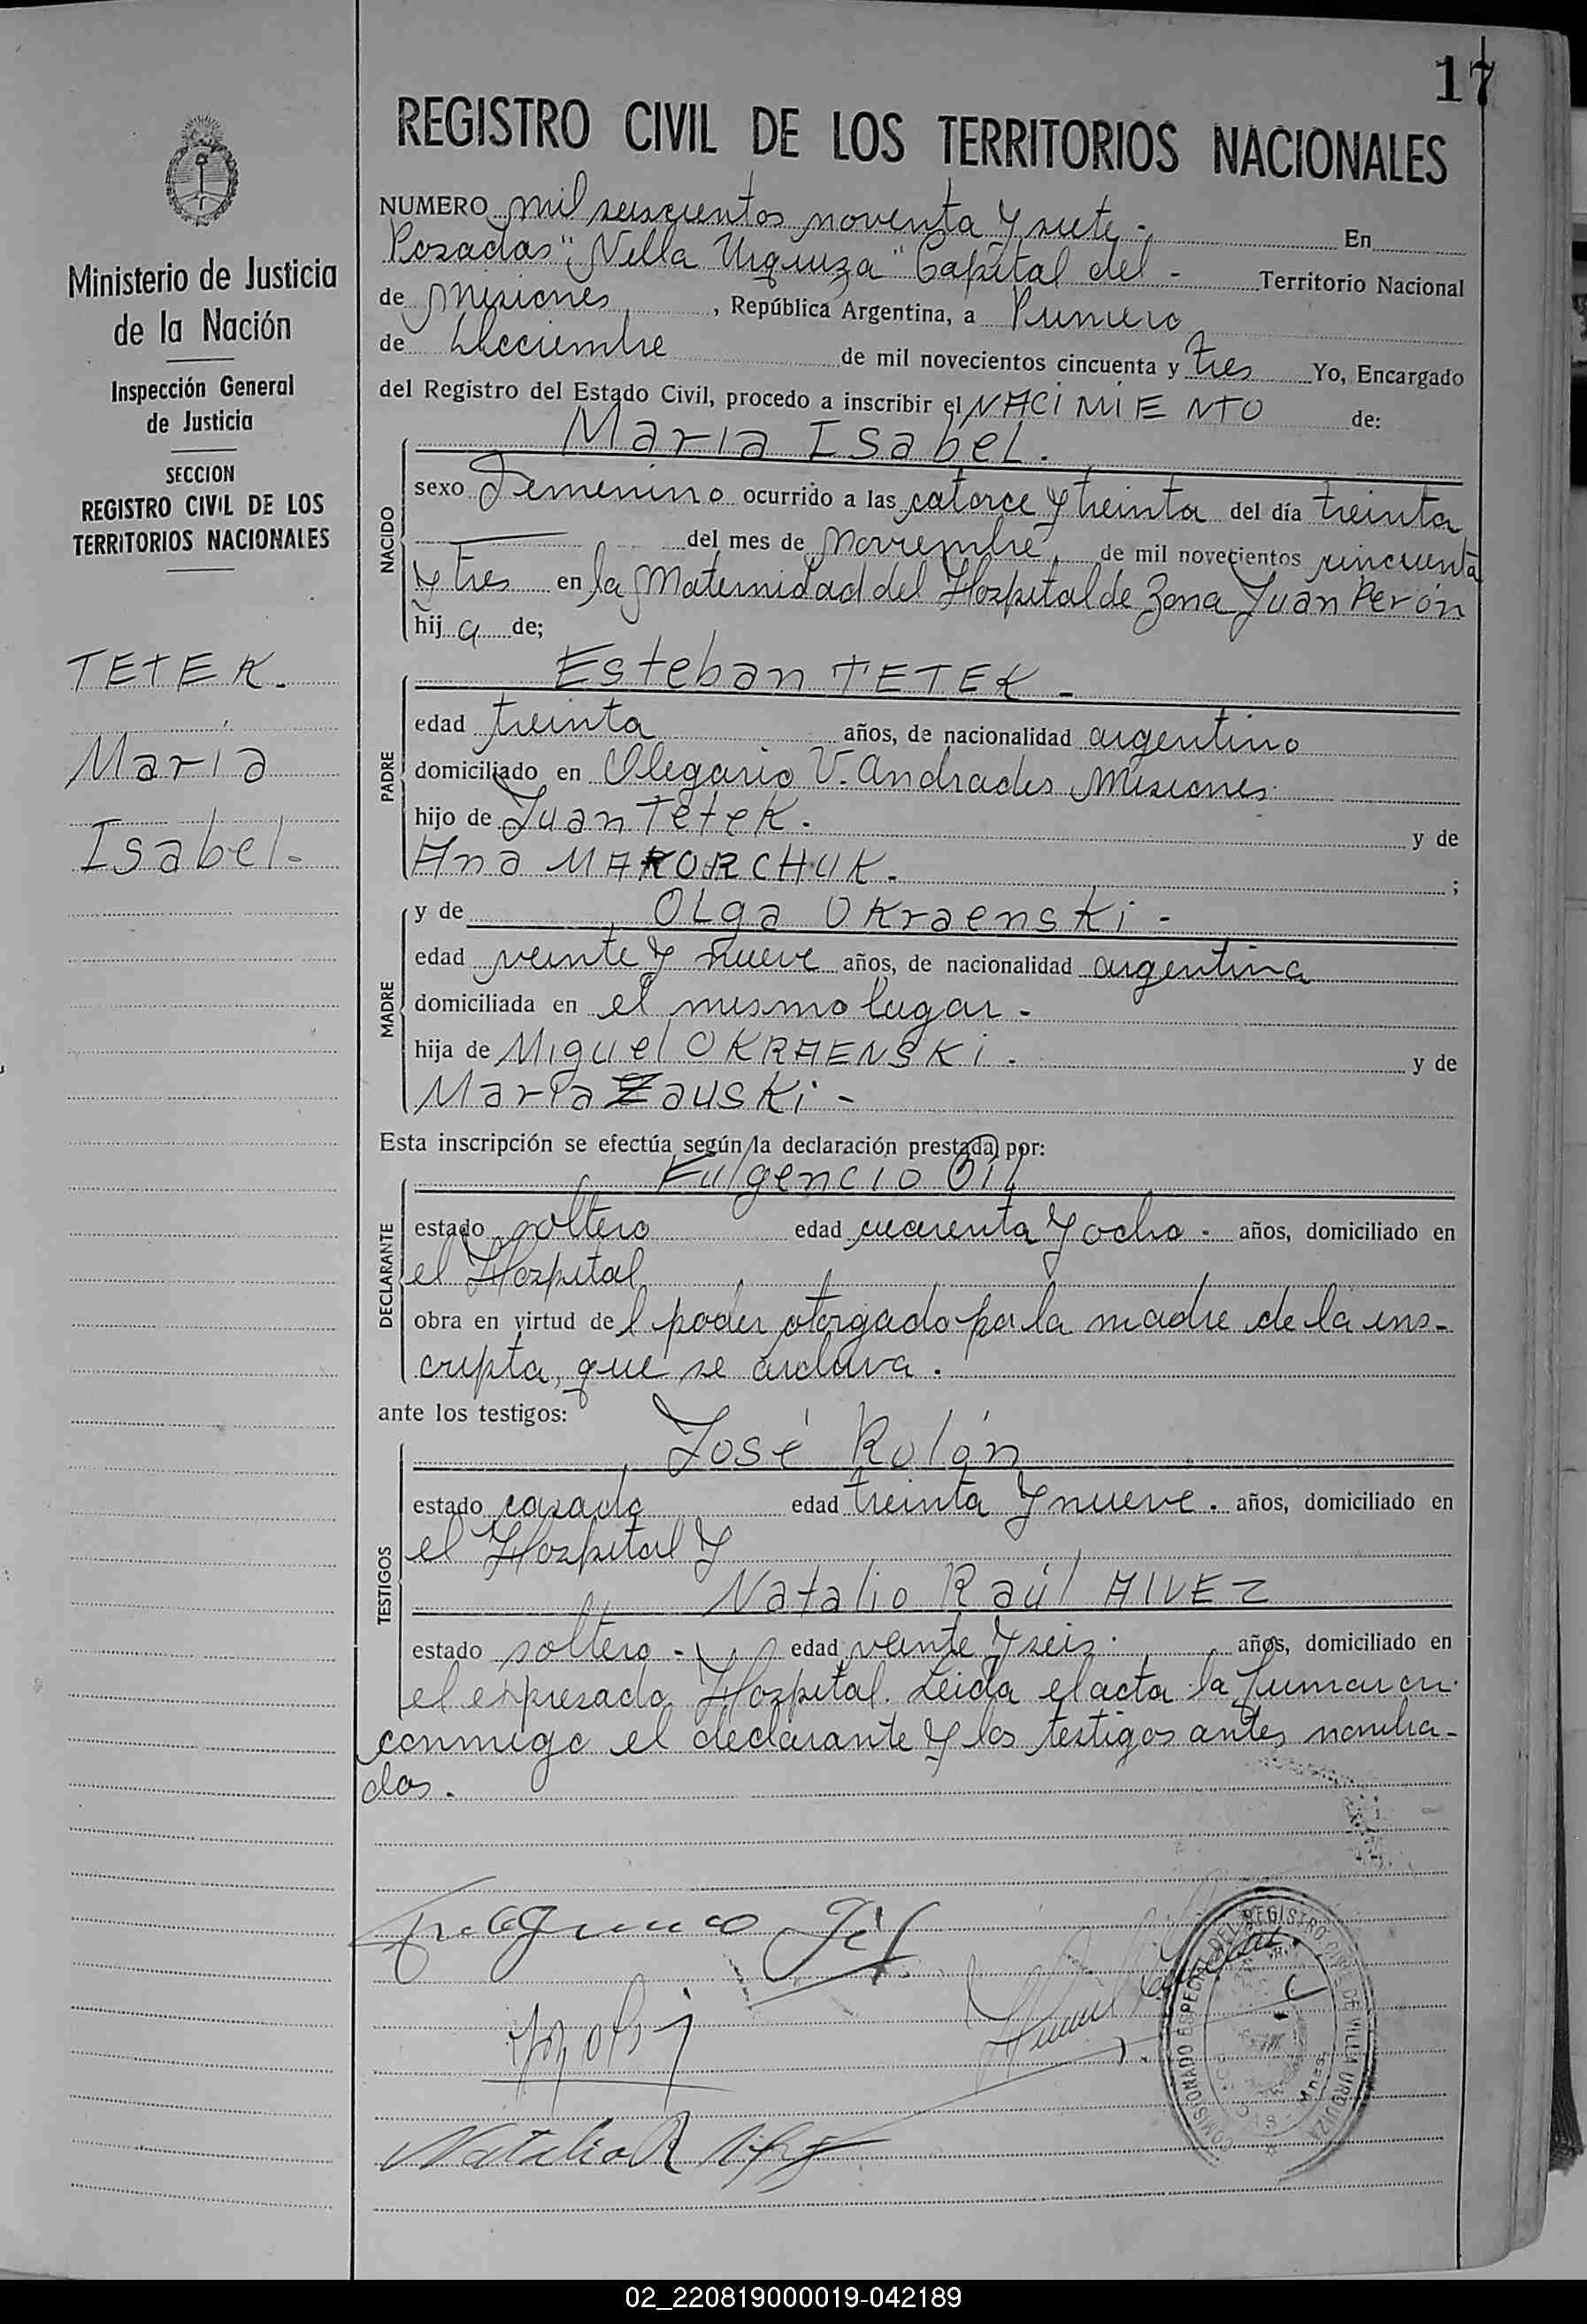 17
REGISTRO CIVIL DE LOS TERRITORIOS NACIONALES
Ministerio de Justicia
de la Nación
Inspección General
de Justicia
SECCION
REGISTRO CIVIL DE LOS
TERRITORIOS NACIONALES
TETEK.
María
Isabel.
NUMERO mil seiscientos noventa y siete.- En
Posadas "Villa Urquiza" Capital del - Territorio Nacional
de Misiones, República Argentina, a Primero
de Diciembre de mil novecientos cincuenta y tres Yo, Encargado
del Registro del Estado Civil, procedo a inscribir el NACIMIENTO de:
NACIDO
María Isabel.
sexo Femenino ocurrido a las catorce y treinta del día treinta
del mes de Noviembre, de mil novecientos cincuenta
y tres en la Maternidad del Hospital de Zona Juan Perón
hij a de;
PADRE
Esteban TETEK -
edad treinta años, de nacionalidad argentino
domiciliado en Olegario V. Andrades Misiones
hijo de Juan Tetek. y de
Ana MAKORCHUK. ;
MADRE
y de Olga Okraenski -
edad veinte y nueve años, de nacionalidad argentina
domiciliada en el mismo lugar -
hija de Miguel OKRAENSKI. y de
María Zauski -
Esta inscripción se efectúa según la declaración prestada por:
DECLARANTE
Fulgencio Gil
estado soltero edad cuarenta y ocho - años, domiciliado en
el Hospital
obra en virtud de l poder otorgado por la madre de la ins-
cripta, que se archiva.
ante los testigos:
TESTIGOS
José Rolón
estado casado edad treinta y nueve. años, domiciliado en
el Hospital y
Natalio Raúl AlVEZ
estado soltero - edad veinte y seis. años, domiciliado en
el expresado Hospital. Leida el acta la firmaron
conmigo el declarante y los testigos antes nombra-
dos.
Gil
Natalio R
COMISIONADO ESPECIAL DEL REGISTRO CIVIL DE VILLA URQUIZA
02_220819000019-042189